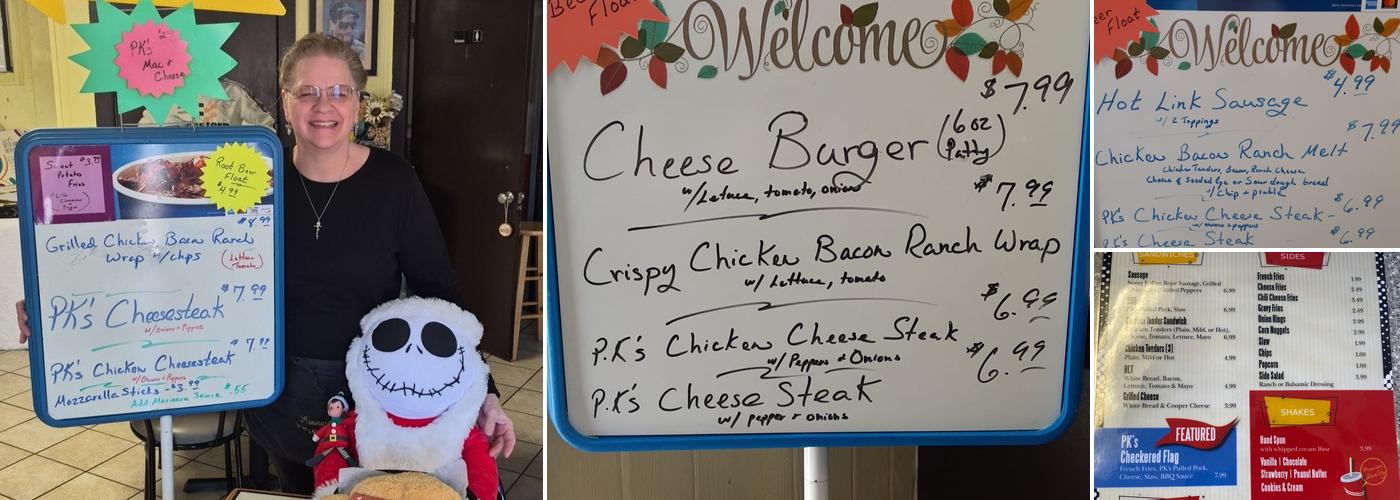 PK's $2.99
Mac &
Cheese
Sweet $3.99
Potato
Fries
Root Beer
Float
$4.99
$8.99
Grilled Chicken Bacon Ranch
Wrap w/chips
(Lettuce
Tomato)
$7.99
PK's Cheesesteak
w/Onions & Peppers
$7.99
PK's Chicken Cheesesteak
w/Onions & Peppers
Mozzarella Sticks - $3.99
Add Marinara Sauce $.55
Beer
Float
Welcome
$7.99
Cheese Burger (6 oz
Patty)
w/Lettuce, tomato, onion
$7.99
Crispy Chicken Bacon Ranch Wrap
w/ Lettuce, tomato
$6.99
P.K's Chicken Cheese Steak
w/Peppers & Onions
$6.99
P.K's Cheese Steak
w/ pepper & onions
Beer Float
Welcome
$4.99
Hot Link Sausage
w/ 2 Toppings
$7.99
Chicken Bacon Ranch Melt
Chicken Tenders, Bacon, Ranch Cheese
Choice of Seeded Rye or Sour dough bread
w/ Chip & pickle
PK's Chicken Cheese Steak - $6.99
w/ onions & peppers
PK's Cheese Steak $6.99
SANDWICHES
Sausage
Rope Sausage, Grilled
Grilled Peppers 6.99
Pulled Pork, Slaw 6.99
Tender Sandwich
Chicken Tenders (Plain, Mild or Hot),
Cheese, Lettuce, Tomato, Mayo 6.99
Chicken Tenders (3)
Plain, Mild or Hot 4.99
BLT
White Bread, Bacon,
Lettuce, Tomato & Mayo 4.99
Grilled Cheese
White Bread & Cooper Cheese 3.99
FEATURED
PK's
Checkered Flag
French Fries, PK's Pulled Pork,
Cheese, Slaw, BBQ Sauce 7.99
SIDES
French Fries 1.99
Cheese Fries 2.49
Chili Cheese Fries 3.49
Gravy Fries 2.49
Onion Rings 2.99
Corn Nuggets 2.99
Slaw 1.99
Chips 1.00
Popcorn 1.00
Side Salad 3.99
Ranch or Balsamic Dressing
SHAKES
Hand Spun
with whipped cream 16oz 3.99
Vanilla | Chocolate
Strawberry | Peanut Butter
Cookies & Cream